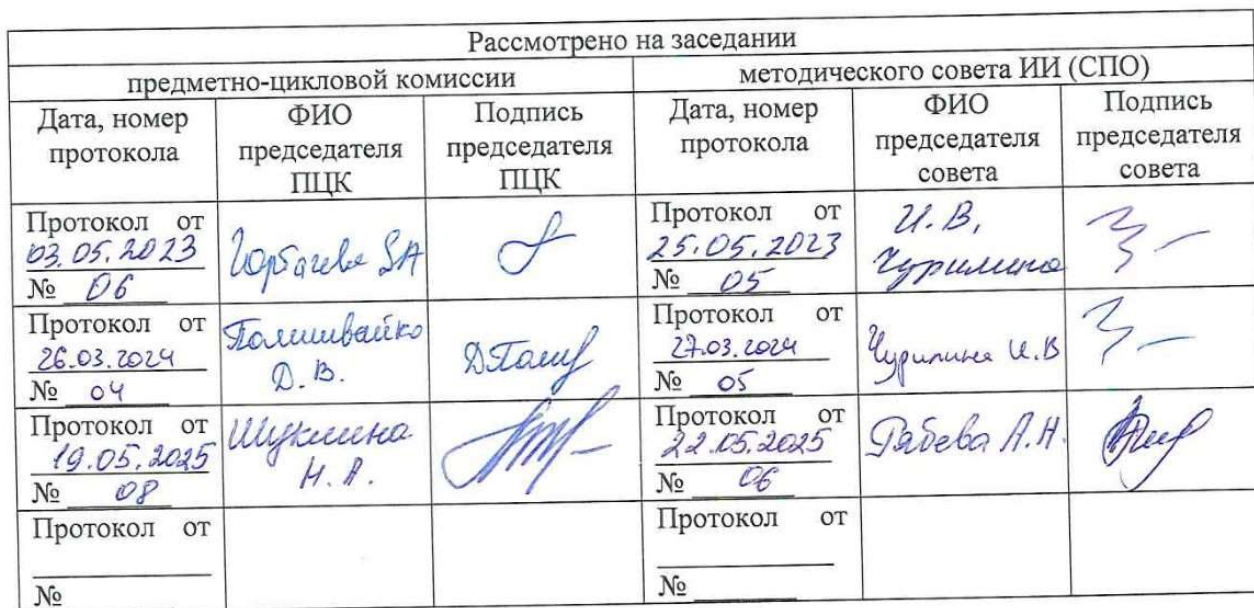 Рассмотрено на заседании
предметно-цикловой комиссии
методического совета ИИ (СПО)
Дата, номер
протокола
ФИО
председателя
ПЦК
Подпись
председателя
ПЦК
Дата, номер
протокола
ФИО
председателя
совета
Подпись
председателя
совета
Протокол от
03.05.2023
№ 06
Горбачева
Протокол от
25.05.2023
№ 05
И.В.
Чурилина
Протокол от
26.03.2024
№ 04
Д.В.
Протокол от
27.03.2024
№ 05
Чурилина И.В
Протокол от
19.05.2025
№ 08
Шуклина
Н.А.
Протокол от
22.05.2025
№ 06
Рябева А.Н.
Протокол от
№
Протокол от
№